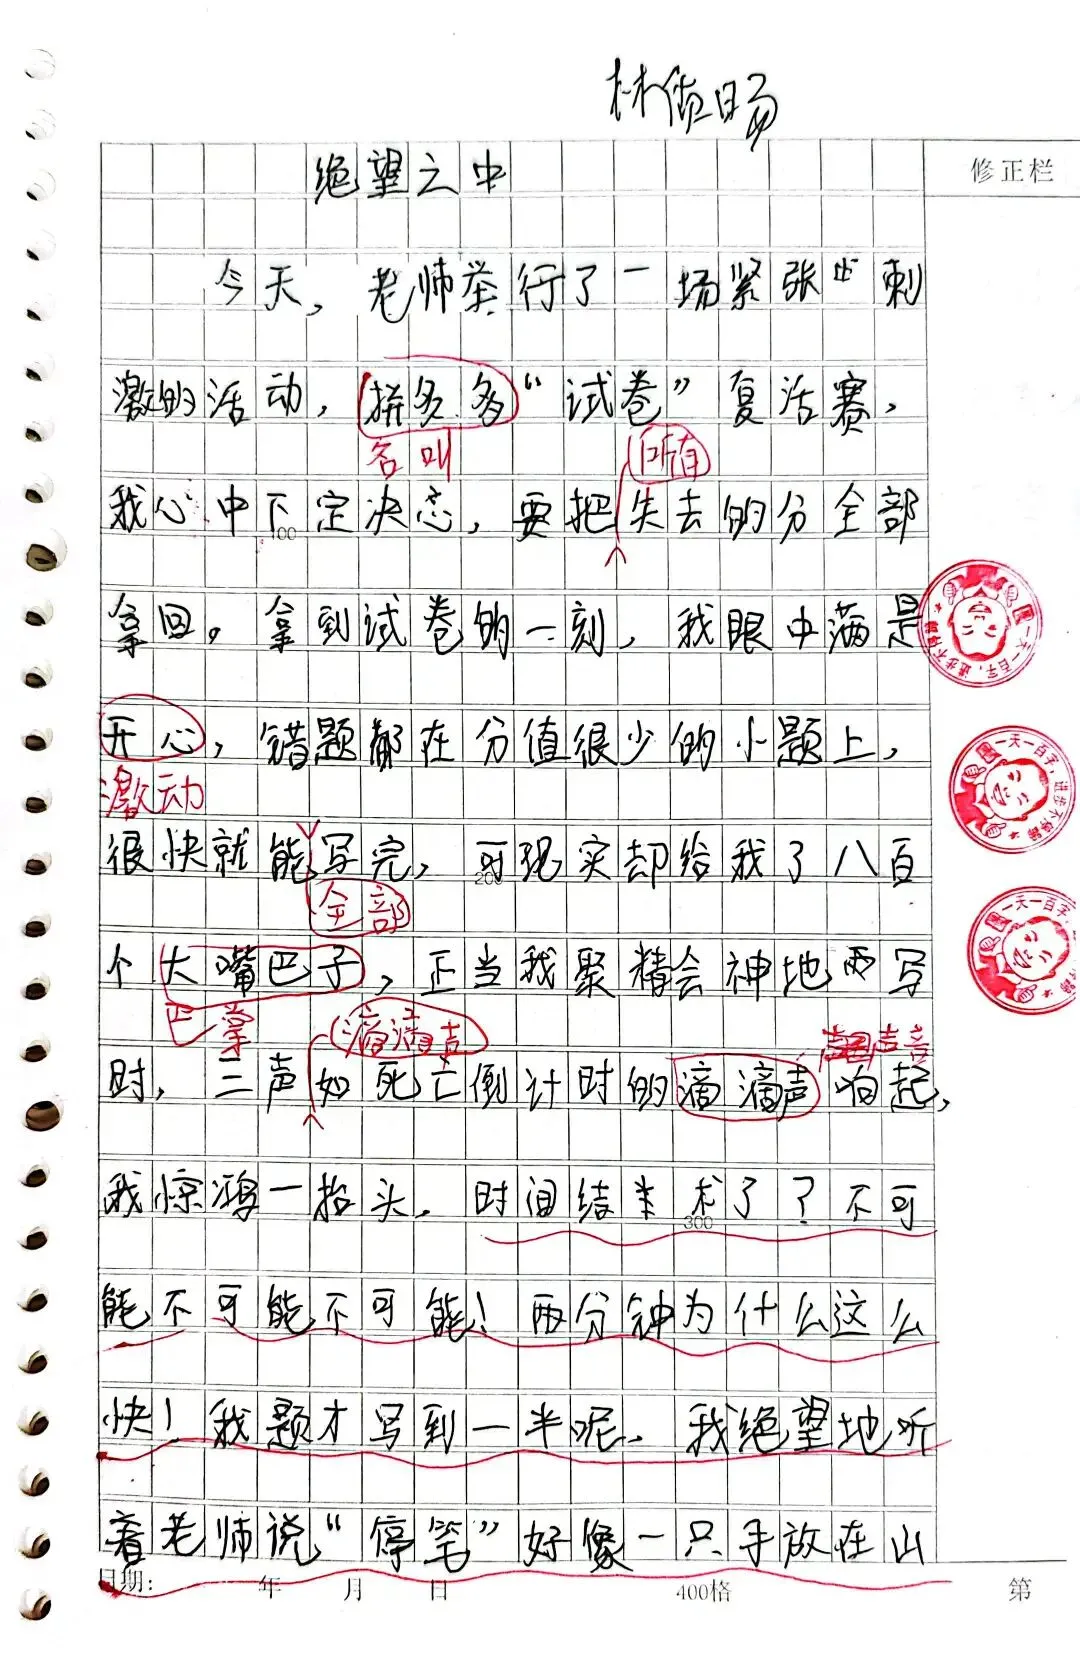 修正栏
绝望之中
今天，老师举行了一场紧张业刺
激的活动，拼多多“试卷”复活赛，
名叫
所有
我心中下定决心，要把失去的分全部
拿回，拿到试卷的一刻，我眼中满是
开心，错题都在分值很少的小题上，
激动
很快就能写完，可现实却给我了八百
200
全部
个大嘴巴子，正当我聚精会神地而写
巴掌
滴滴声
声音
时，二声如死亡倒计时的滴滴声响起，
我惊鸿一抬头，时间结束了？不可
300
能不可能不可能！两分钟为什么这么
快！我题才写到一半呢，我绝望地听
着老师说“停笔”好像一只手放在山
日期： 年 月 日 400格 第
一天一百字，进步不停蹄
一天一百字，进步不停蹄
一天一百字，